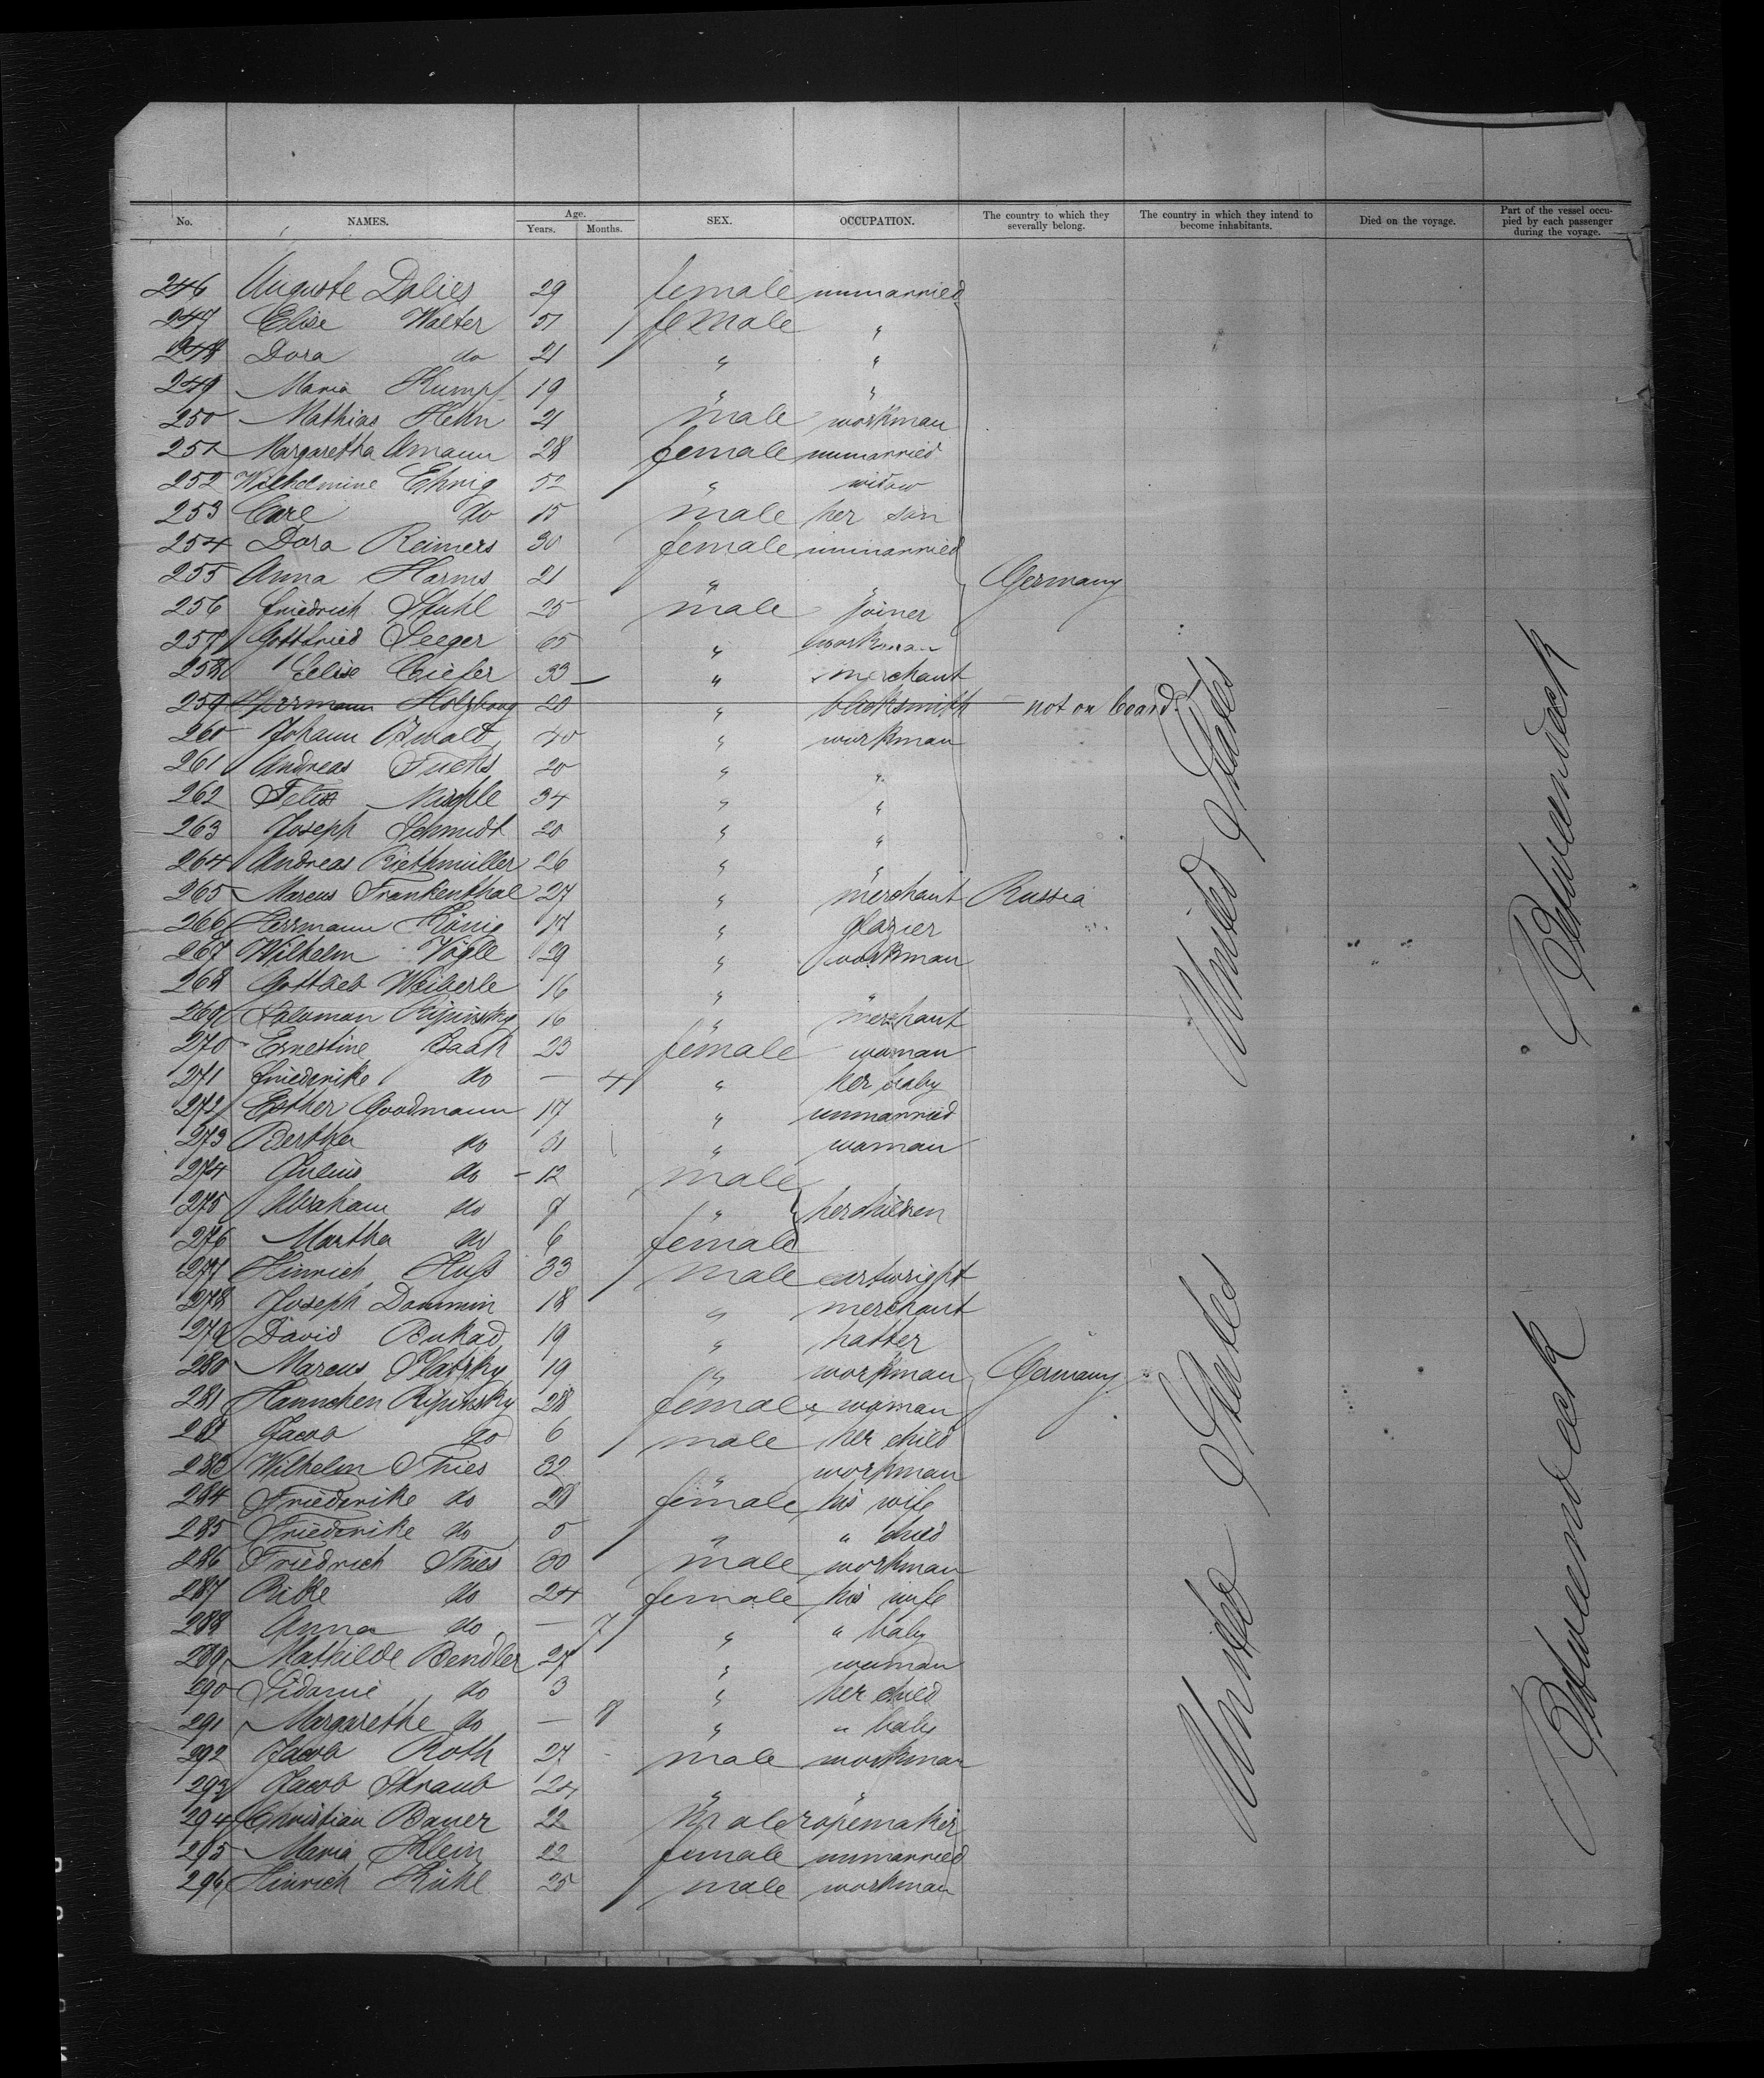 No. NAMES. Age. Years. Months. SEX. OCCUPATION. The country to which they severally belong. The country in which they intend to become inhabitants. Died on the voyage. Part of the vessel occupied by each passenger during the voyage.
246 Auguste Dalies 29 female unmarried
247 Elise Walter 51 female "
248 Dora do 21 " "
249 Maria Kumpf 19 " "
250 Mathias Hehn 21 male workman
251 Margaretha Amann 28 female unmarried
252 Wilhelmine Ehrig 52 " widow
253 Carl do 15 male her son
254 Dora Reimers 30 female unmarried
255 Anna Harms 21 " " Germany
256 Friedrich Stuhl 25 male joiner
257 Gottfried Seeger 65 " workman
258 33 " merchant
259 Hermann Holzboog 20 " blacksmith not on board.
260 Johann Ewald 40 " workman
261 Andreas Fuchs 20 " "
262 Felix 34 " "
263 Joseph Schmidt 20 " "
264 Andreas Riethmüller 26 " "
265 Marcus Frankenthal 27 " merchant Russia
266 Herrmann König 17 " glazier
267 Wilhelm Vögle 29 " workman
268 Gottlieb Weiberle 16 " "
269 Saloman Ripinsky 16 " merchant
270 Ernestine Isaak 23 female woman
271 Friederike do — 4 " her baby
272 Esther Goodmann 17 " unmarried
273 Bertha do 31 " woman
274 Julius do 12 male
275 Abraham do 9 " her children
276 Martha do 6 female
277 Hinrich Huß 33 male cartwright
278 Joseph Dammin 18 " merchant
279 David Bukad 19 " hatter
280 Marcus Platzky 19 " workman Germany
281 Hannchen Ripinsky 28 female woman
282 Jacob do 6 male her child
283 Wilhelm Thies 32 " workman
284 Friederike do 28 female his wife
285 Friederike do 5 " " child
286 Friedrich Thies 30 male workman
287 Rike do 24 female his wife
288 Anna do — 7 " " baby
289 Mathilde Bendler 27 " woman
290 Sidonie do 3 " her child
291 Margarethe do — 8 " " baby
292 Jacob Roth 27 male workman
293 Jacob Straub 24 " "
294 Christian Bauer 22 male ropemaker
295 Maria Klein 22 female unmarried
296 Hinrich Rühl 25 male workman
United States
United States
Between deck
Between deck